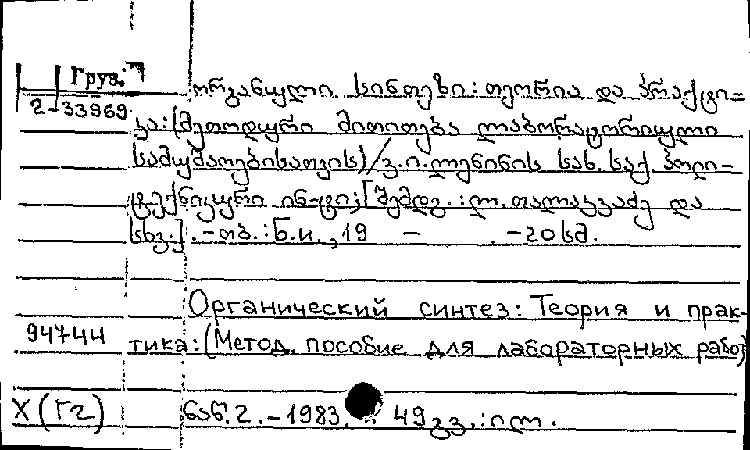 Груз.
ორგანული სინთეზი: თეორია და პრაქტი-
2-33969
კა: (მეთოდური მითითება ლაბორატორიული
სამუშაოებისათვის)/ვ.ი.ლენინის სახ. საქ. პოლი-
ტექნიკური ინ-ტი; [შემდგ.: ლ. თალაკვაძე და
სხვ.]. -თბ.: ნ.ი., 19 - . -20 სმ.
Органический синтез: Теория и прак-
94744
тика: (Метод. пособие для лабораторных работ)
X (Г2)
ნაწ. 2. -1983. 49 გვ.: ილ.